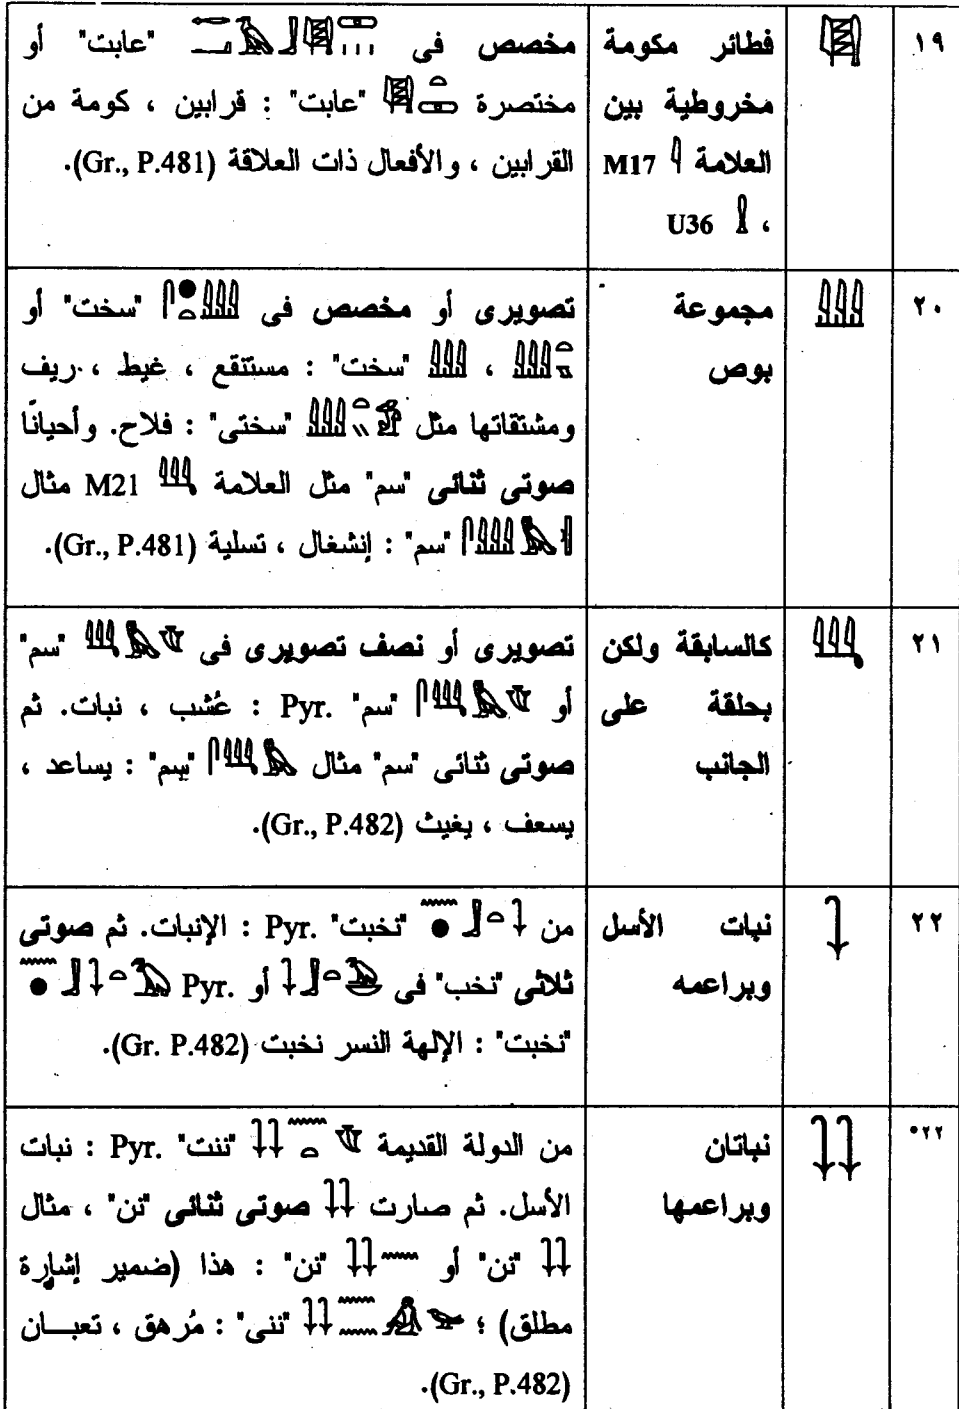 ١٩
فطائر مكومة
مخروطية بين
العلامة M17
، U36
مخصص فى "عابت" أو
مختصرة "عابت" : قرابين ، كومة من
القرابين ، والأفعال ذات العلاقة (Gr., P.481).
٢٠
مجموعة
بوص
تصويرى أو مخصص فى "سخت" أو
، "سخت" : مستنقع ، غيط ، ريف
ومشتقاتها مثل "سختى" : فلاح. وأحيانًا
صوتى ثنائى "سم" مثل العلامة M21 مثال
"سم" : إنشغال ، تسلية (Gr., P.481).
٢١
كالسابقة ولكن
بحلقة على
الجانب
تصويرى أو نصف تصويرى فى "سم"
أو "سم" Pyr. : عُشب ، نبات. ثم
صوتى ثنائى "سم" مثال "سم" : يساعد ،
يسعف ، يغيث (Gr., P.482).
٢٢
نبات الأسل
وبراعمه
من "نخبت" Pyr. : الإنبات. ثم صوتى
ثلاثى "نخب" فى أو Pyr.
"نخبت" : الإلهة النسر نخبت (Gr. P.482).
٢٢*
نباتان
وبراعمها
من الدولة القديمة "ننت" Pyr. : نبات
الأسل. ثم صارت صوتى ثنائى "نن" ، مثال
"نن" أو "نن" : هذا (ضمير إشارة
مطلق) ؛ "ننى" : مُرهق ، تعبــان
(Gr., P.482).